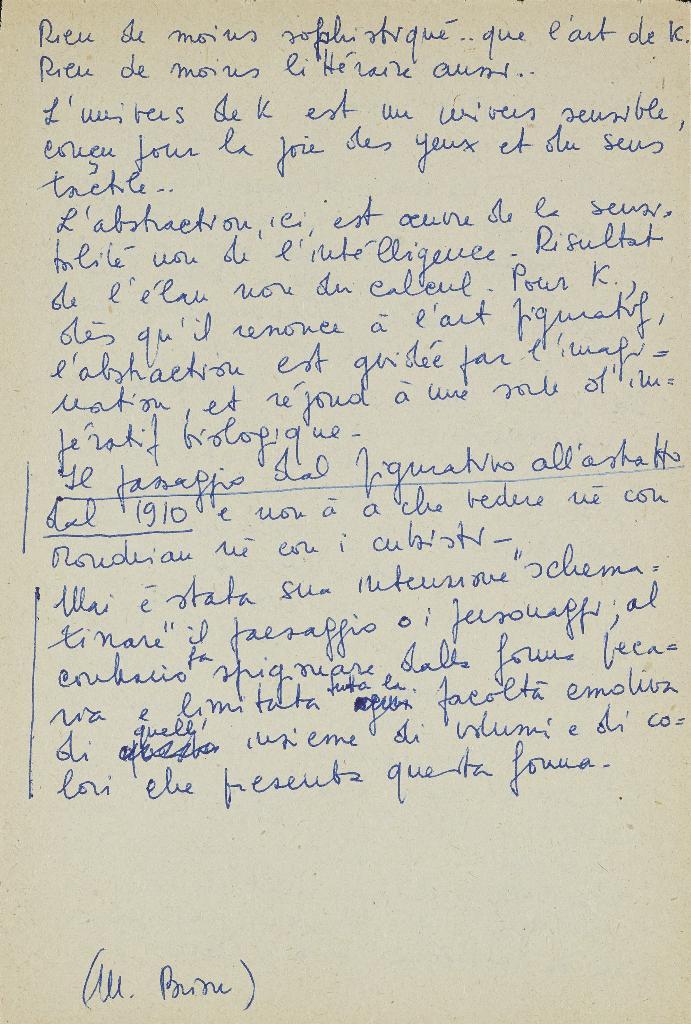 Rien de moins sophistiqué.. que l'art de K.
Rien de moins littéraire aussi..
L'univers de K est un univers sensible,
conçu pour la joie des yeux et du sens
tactile..
L'abstraction, ici, est œuvre de la sensi-
bilité non de l'intélligence. Résultat
de l'élan non du calcul. Pour K.,
dès qu'il renonce à l'art figuratif,
l'abstraction est guidée par l'imagi=
nation, et répond à une sorte d'im=
pératif biologique.
Il passaggio dal figurativo all'astratto
dal 1910 e non à a che vedere nè con
Mondrian nè con i cubisti -
Mai è stata sua intenzione "schema=
tizzare" il paesaggio o i personaggi; al
contrario sprigionare dalla forma preca=
ria e limitata tutta la facoltà emotiva
di quelli insieme di volumi e di co=
lori che presenta questa forma.
(M. Brion)